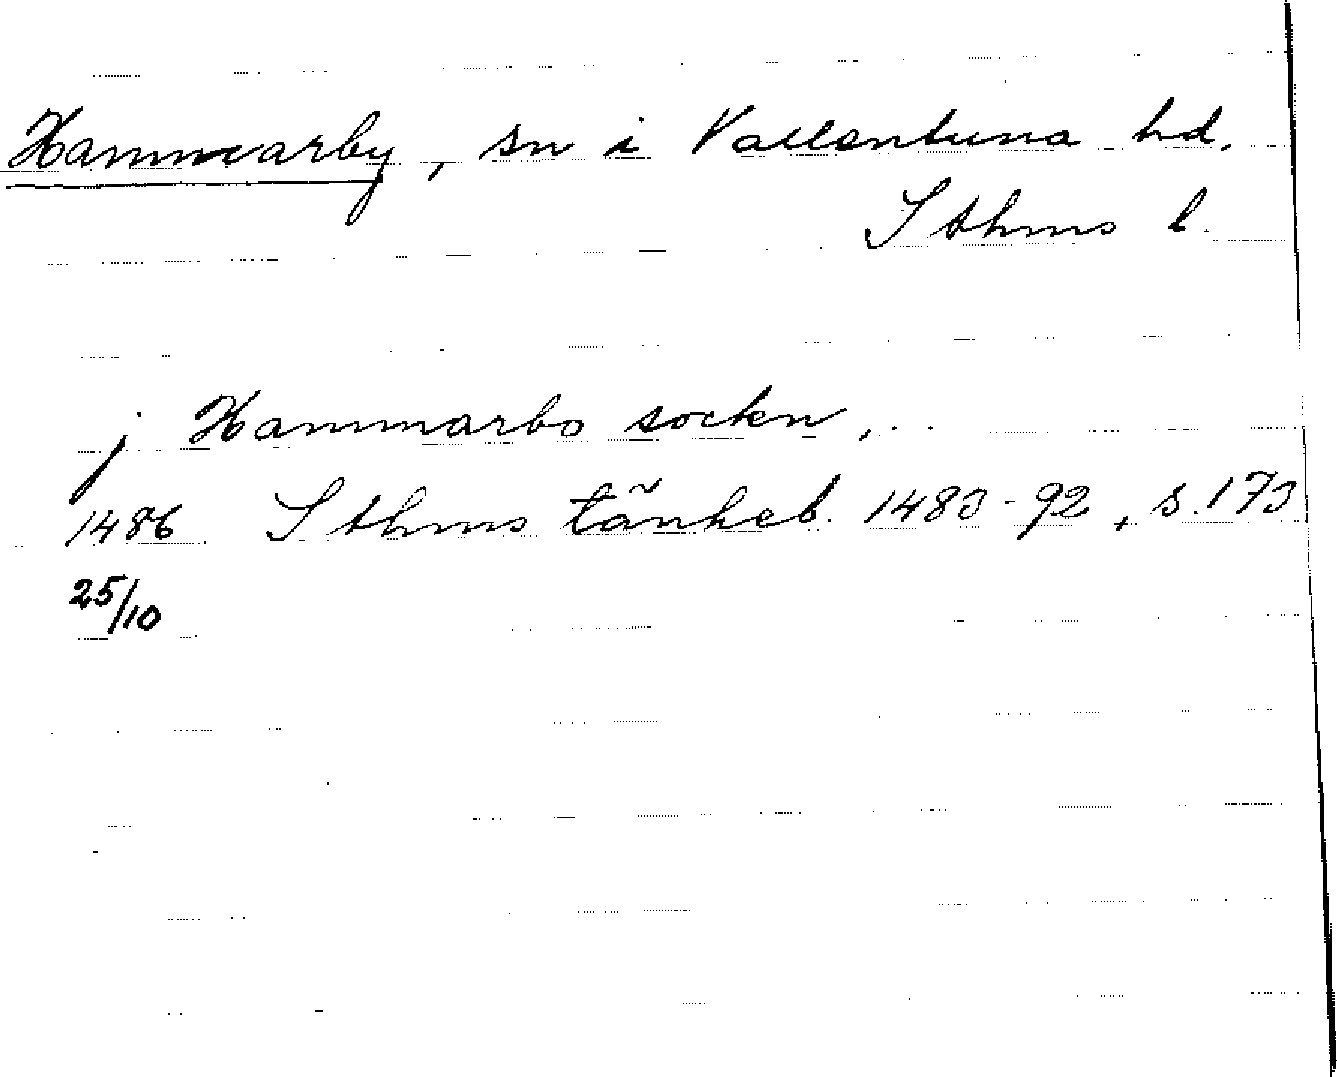 Hammarby, sn i Vallentuna hd.
Sthms l.
j Hammarbo sockn, ..
1486 Sthms tänkeb. 1483-92, s. 173
25/10